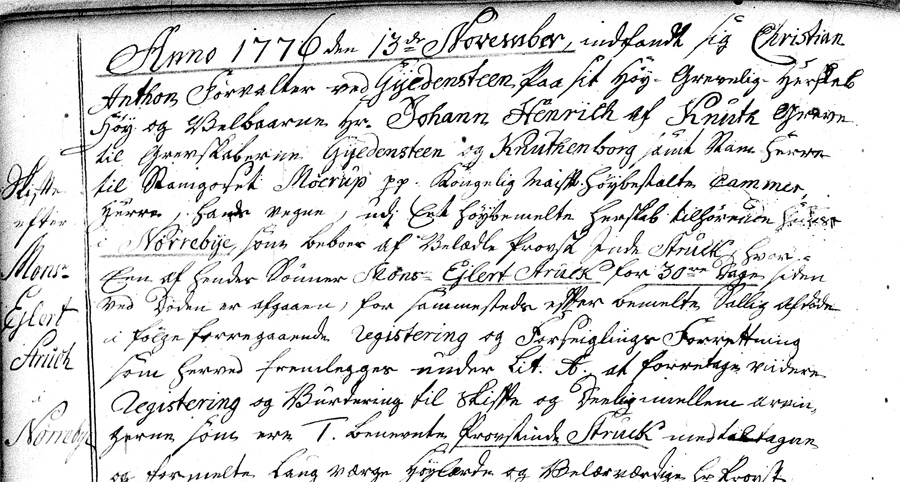 Anno 1776 den 13de November, indfandt sig Christian
Anthon Forvalter ved Gyldensteen paa sit Høy-Grevelig-Herskab
Høy og Velbaarne Hr. Johann Henrich af Knuth Greve
til Grevskaberne Gyldensteen og Knuthenborg samt Stam Herre
til Stamgodset Møerup pp. Kongelig Maist. Høybestalte Cammer
Herre, hans vegne, udi Eet Høybemelte Herskab tilhørende Huus
i Nørrebye, som beboes af Velædle Provst Inde Struck, hvor
Een af hendes Sønner Mons- Ejlert Struck for 30te Dage siden
ved Døden er afgaaen, for sammesteds efter bemelte Sallig afdøde
i følge forregaaende registering og Forseiglings Forrettning
som herved fremlegges under Lit. A. at forretage viidere
Registering og Vurtering til Skifte og Deelig imellem arvin,
gerne som ere T. benevnte Provstinde Struck med tiltagne
og formelte Laug værge Høylærde og Velærværdige Hr Provst
Skifte
efter
Mons-
Ejlert
Struck
i
Nørrebye